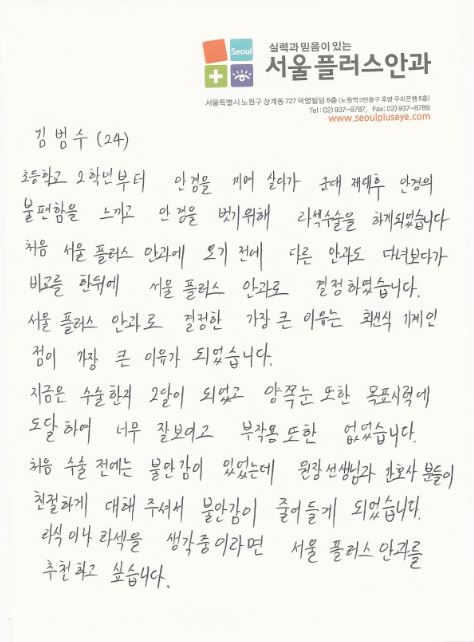 Seoul
실력과 믿음이 있는
서울플러스안과
서울특별시 노원구 상계동 727 덕영빌딩 6층 (노원역5번출구 후방 우리은행 6층)
Tel : 02) 937-8787, Fax: 02) 937-8789
www.seoulpluseye.com
김범수 (24)
초등학교 2학년부터 안경을 끼며 살다가 군대 제대후 안경의
불편함을 느끼고 안경을 벗기위해 라섹수술을 하게되었습니다
처음 서울 플러스 안과에 오기 전에 다른 안과도 다녀보다가
비교를 한뒤에 서울 플러스 안과로 결정하였습니다.
서울 플러스 안과로 결정한 가장 큰 이유는 최신식 기계인
점이 가장 큰 이유가 되었습니다.
지금은 수술한지 2달이 되었고 양쪽눈 또한 목표시력에
도달하여 너무 잘보이고 부작용 또한 없었습니다.
처음 수술 전에는 불안감이 있었는데 원장선생님과 간호사 분들이
친절하게 대해 주셔서 불안감이 줄어들게 되었습니다.
라식이나 라섹을 생각중이라면 서울 플러스 안과를
추천하고 싶습니다.